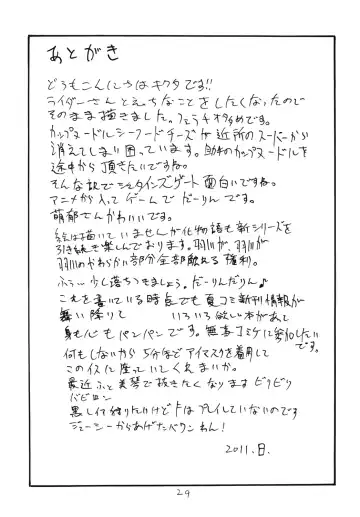 あとがき
どうもこんにちはキクタです!!
ライダーさんとえっちなことをしたくなったので
そのまま描きました。フェラチオ多めです。
カップヌードルシーフードチーズが近所のスーパーから
消えてしまい困っています。カップヌードルを
途中から頂きたいですね。
そんな訳でシュタインズゲート面白いですね。
アニメから入ってゲームでだーりんです。
萌郁さんかわいいです。
絵は描いていませんが化物語も新シリーズを
引き続き楽しんでおります。羽川が、羽川が
羽川のやわらかい部分全部触れる権利。
ふぅ…少し落ちつきましょう。だーりんだりん♪
これを書いている時点でも夏コミ新刊情報が
舞い降りて いろいろ欲しい本があって
身も心もパンパンです。無事コミケに参加したい
です。
何もしないから5分ほどアイマスクを着用して
このイスに座っていてくれまいか。
最近ふと美琴で抜きたくなります ビリビリ
バビロン
黒しイセ縛りたいけどFはプレイしていないのです
ジューシーからあげたべワンわん!
2011.8.
29